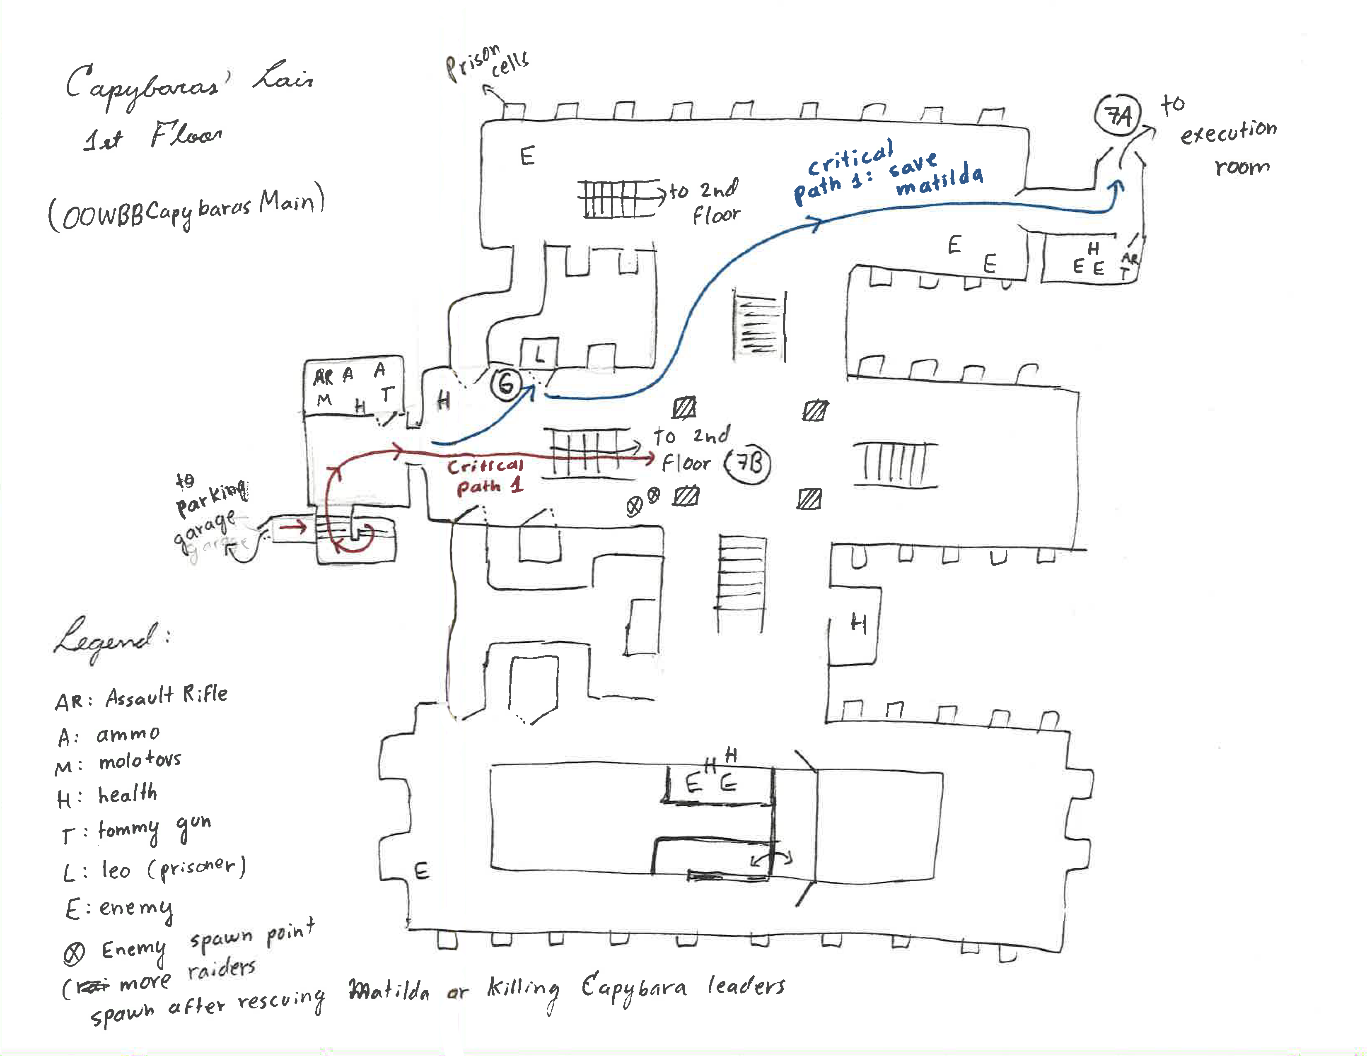 Capybaras' Lair
1st Floor
(00WBBCapybaras Main)
Prison
cells
E
to 2nd
Floor
critical
path 1: save
matilda
7A
to
execution
room
E
E
H
E E
AR
T
L
6
H
AR A A
M H T
to 2nd
Floor 7B
Critical
path 1
to
parking
garage
garage
H
H
H
E E
E
Legend:
AR: Assault Rifle
A: ammo
M: molotovs
H: health
T: tommy gun
L: leo (prisoner)
E: enemy
⊗ Enemy spawn point
(more raiders
spawn after rescuing Matilda or killing Capybara leaders